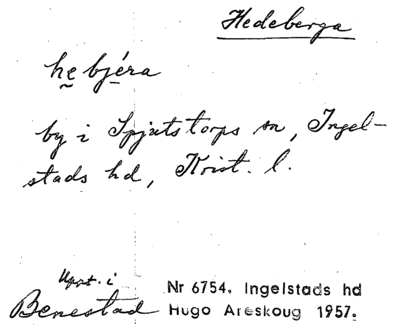 Hedeberga
he̮ bjéra
by i Spjutstorps sn, Ingel-
stads hd, Krist. l.
Uppt. i
Benestad
Nr 6754. Ingelstads hd
Hugo Areskoug 1957.